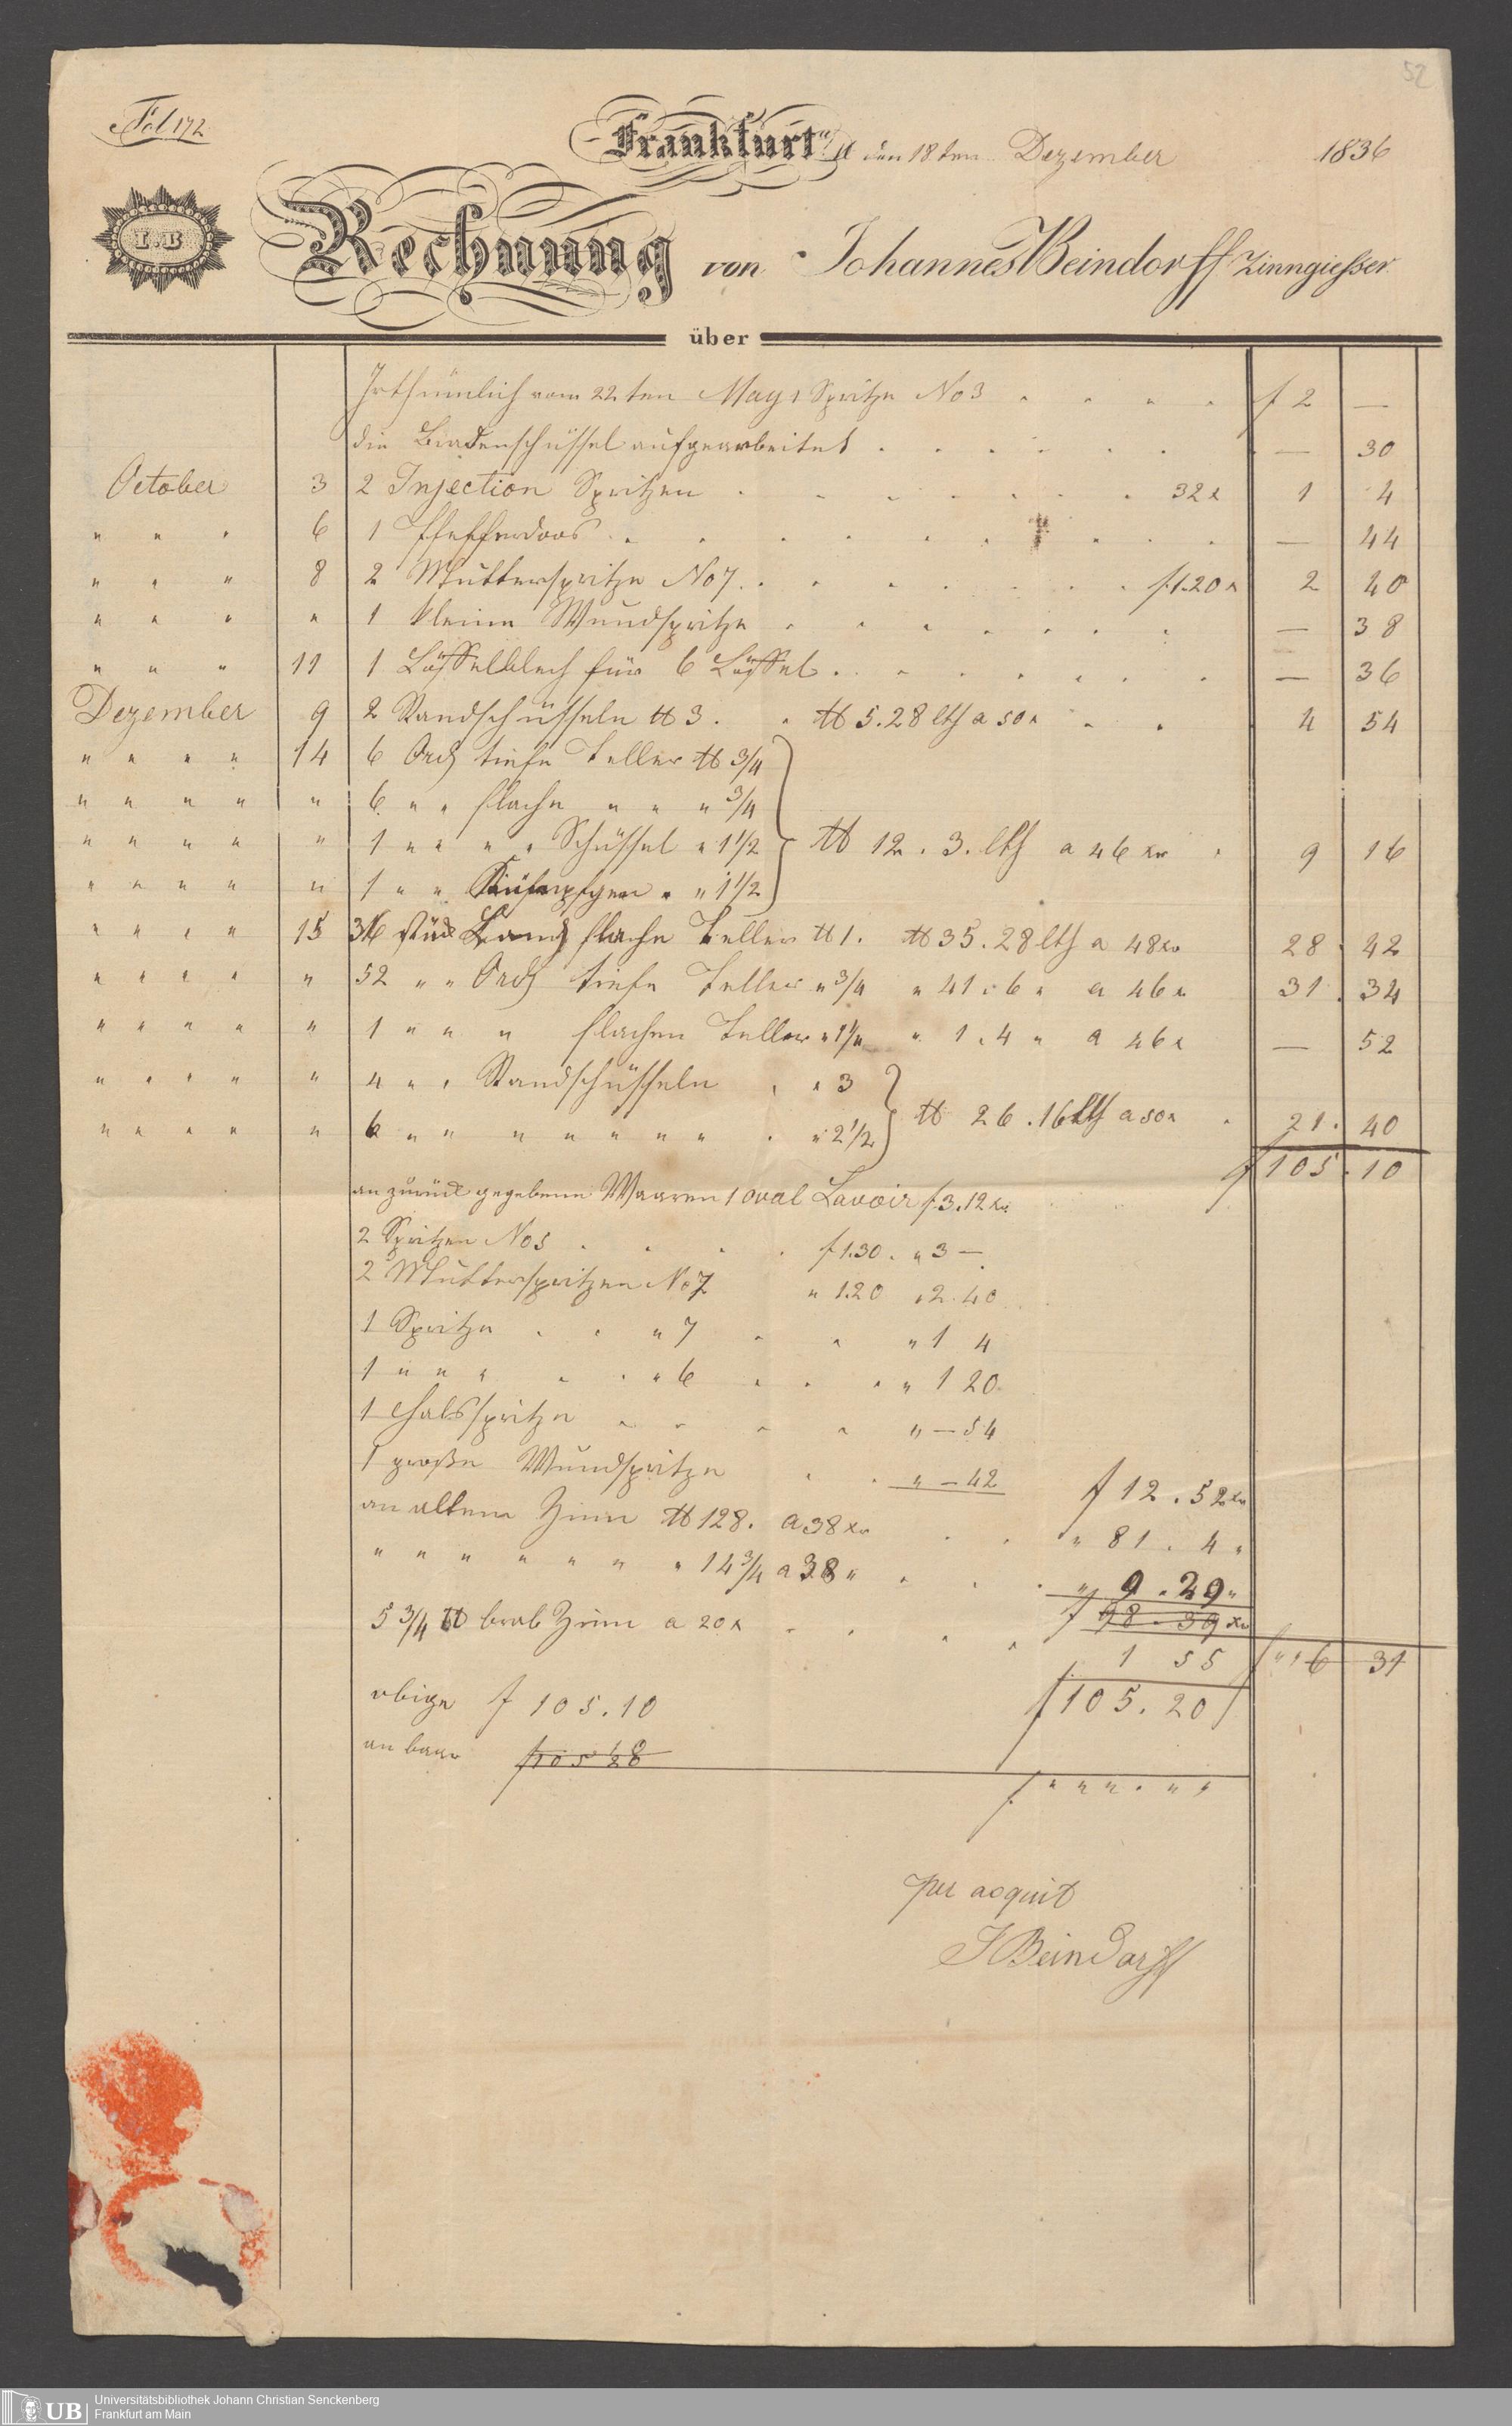 52
Fol 172
Frankfurt a/M den 18ten Dezember 1836
I.B
Rechnung von Johannes Beindorff Zinngiesser
über
Irthümlich vom 22ten May 1 Spritze No 3 . . . . f 2 —
die Bradenschüssel aufgearbeitet . . . . . . — 30
October 3 2 Injection Spritzen . . . . . . 32 x 1 4
" " " 6 1 Pfefferdoos . . . . . . . — 44
" " " 8 2 Mutterspritze No 7 . . . . . f 1.20 x 2 40
" " " " 1 kleine Wundspritze . . . . . . — 38
" " " 11 1 Löffelblech für 6 Löffel . . . . . . — 36
Dezember 9 2 Randschüsseln ℔ 3 . " ℔ 5.28 lth a 50 x . . 4 54
" " " " 14 6 Ord tiefe Teller ℔ 3/4
" " " " " 6 " " flache " " " 3/4
" " " " " 1 " " " " Schüssel " 1 1/2 ℔ 12 . 3 . lth a 46 xr . 9 16
" " " " " 1 " " " " 1 1/2
" " " " 15 36 stück Rand flache Teller ℔ 1 . ℔ 35.28 lth a 48 xr 28 . 42
" " " " " 52 " " Ord tiefe Teller " 3/4 " 41 . 6 " a 46 x 31 . 34
" " " " " 1 " " " flachen Teller " 1 " 1 . 4 " a 46 x — 52
" " " " " 4 " " Randschüsseln . " 3
" " " " " 6 " " " " " " " . " 2 1/2 ℔ 26 . 16 lth a 50 x . 21 . 40
f 105 . 10
an zurück gegebene Waaren 1 oval Lavoir f 3.12 xr
2 Spritzen No 5 . . . . f 1.30 . " 3 —
2 Mutterspritzen No 7 " 1.20 " 2.40
1 Spritze . . " 7 . . " 1 4
1 " " " . . " 6 . . . " 1 20
1 Halsspritze . . . . " — 54
1 große Wundspritze . . " — 42 f 12 . 52 xr
an altem Zinn ℔ 128 . a 38 xr . . " 81 . 4 "
" " " " " " " 14 3/4 a 38 " . . . " 9 . 29 "
f 98 . 39 xr
5 3/4 ℔ Zinn a 20 x . . . . 1 55 f " " 6 31
obige f 105.10 f 105.20
an baar f 105 28
f " " " . " "
per acquit
J Beindorff
UB Universitätsbibliothek Johann Christian Senckenberg
Frankfurt am Main